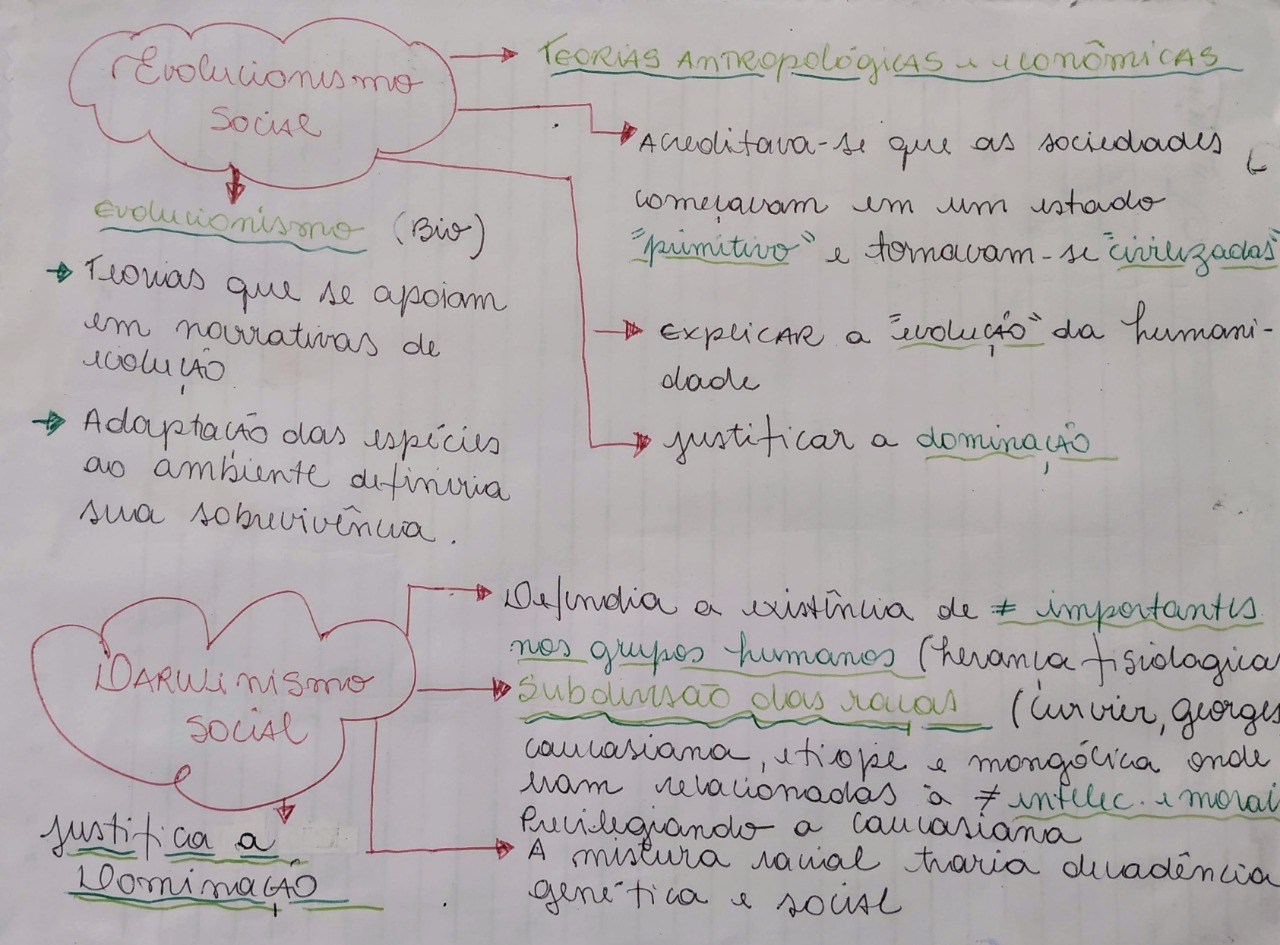 Evolucionismo
Social
Teorias Antropológicas e econômicas
Acreditava-se que as sociedades
começavam em um estado
"primitivo" e tornavam-se "civilizadas"
Explicar a "evolução" da humani-
dade
justificar a dominação
Evolucionismo (Bio)
Teorias que se apoiam
em narrativas de
evolução
Adaptação das espécies
ao ambiente definiria
sua sobrevivência.
Darwinismo
Social
justifica a
Dominação
Defendia a existência de ≠ importantes
nos grupos humanos (herança fisiologica
Subdivisão das raças (Curvier, georges
caucasiana, etiope e mongólica onde
eram relacionadas à ≠ intelec. e morai
Privilegiando a caucasiana
A mistura racial traria decadência
genética e social